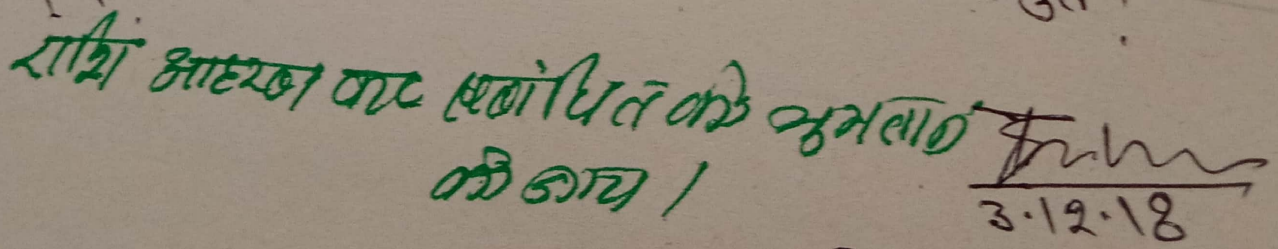 राशि आहरण कर संबंधित को भुगतान
की जाय।
3.12.18